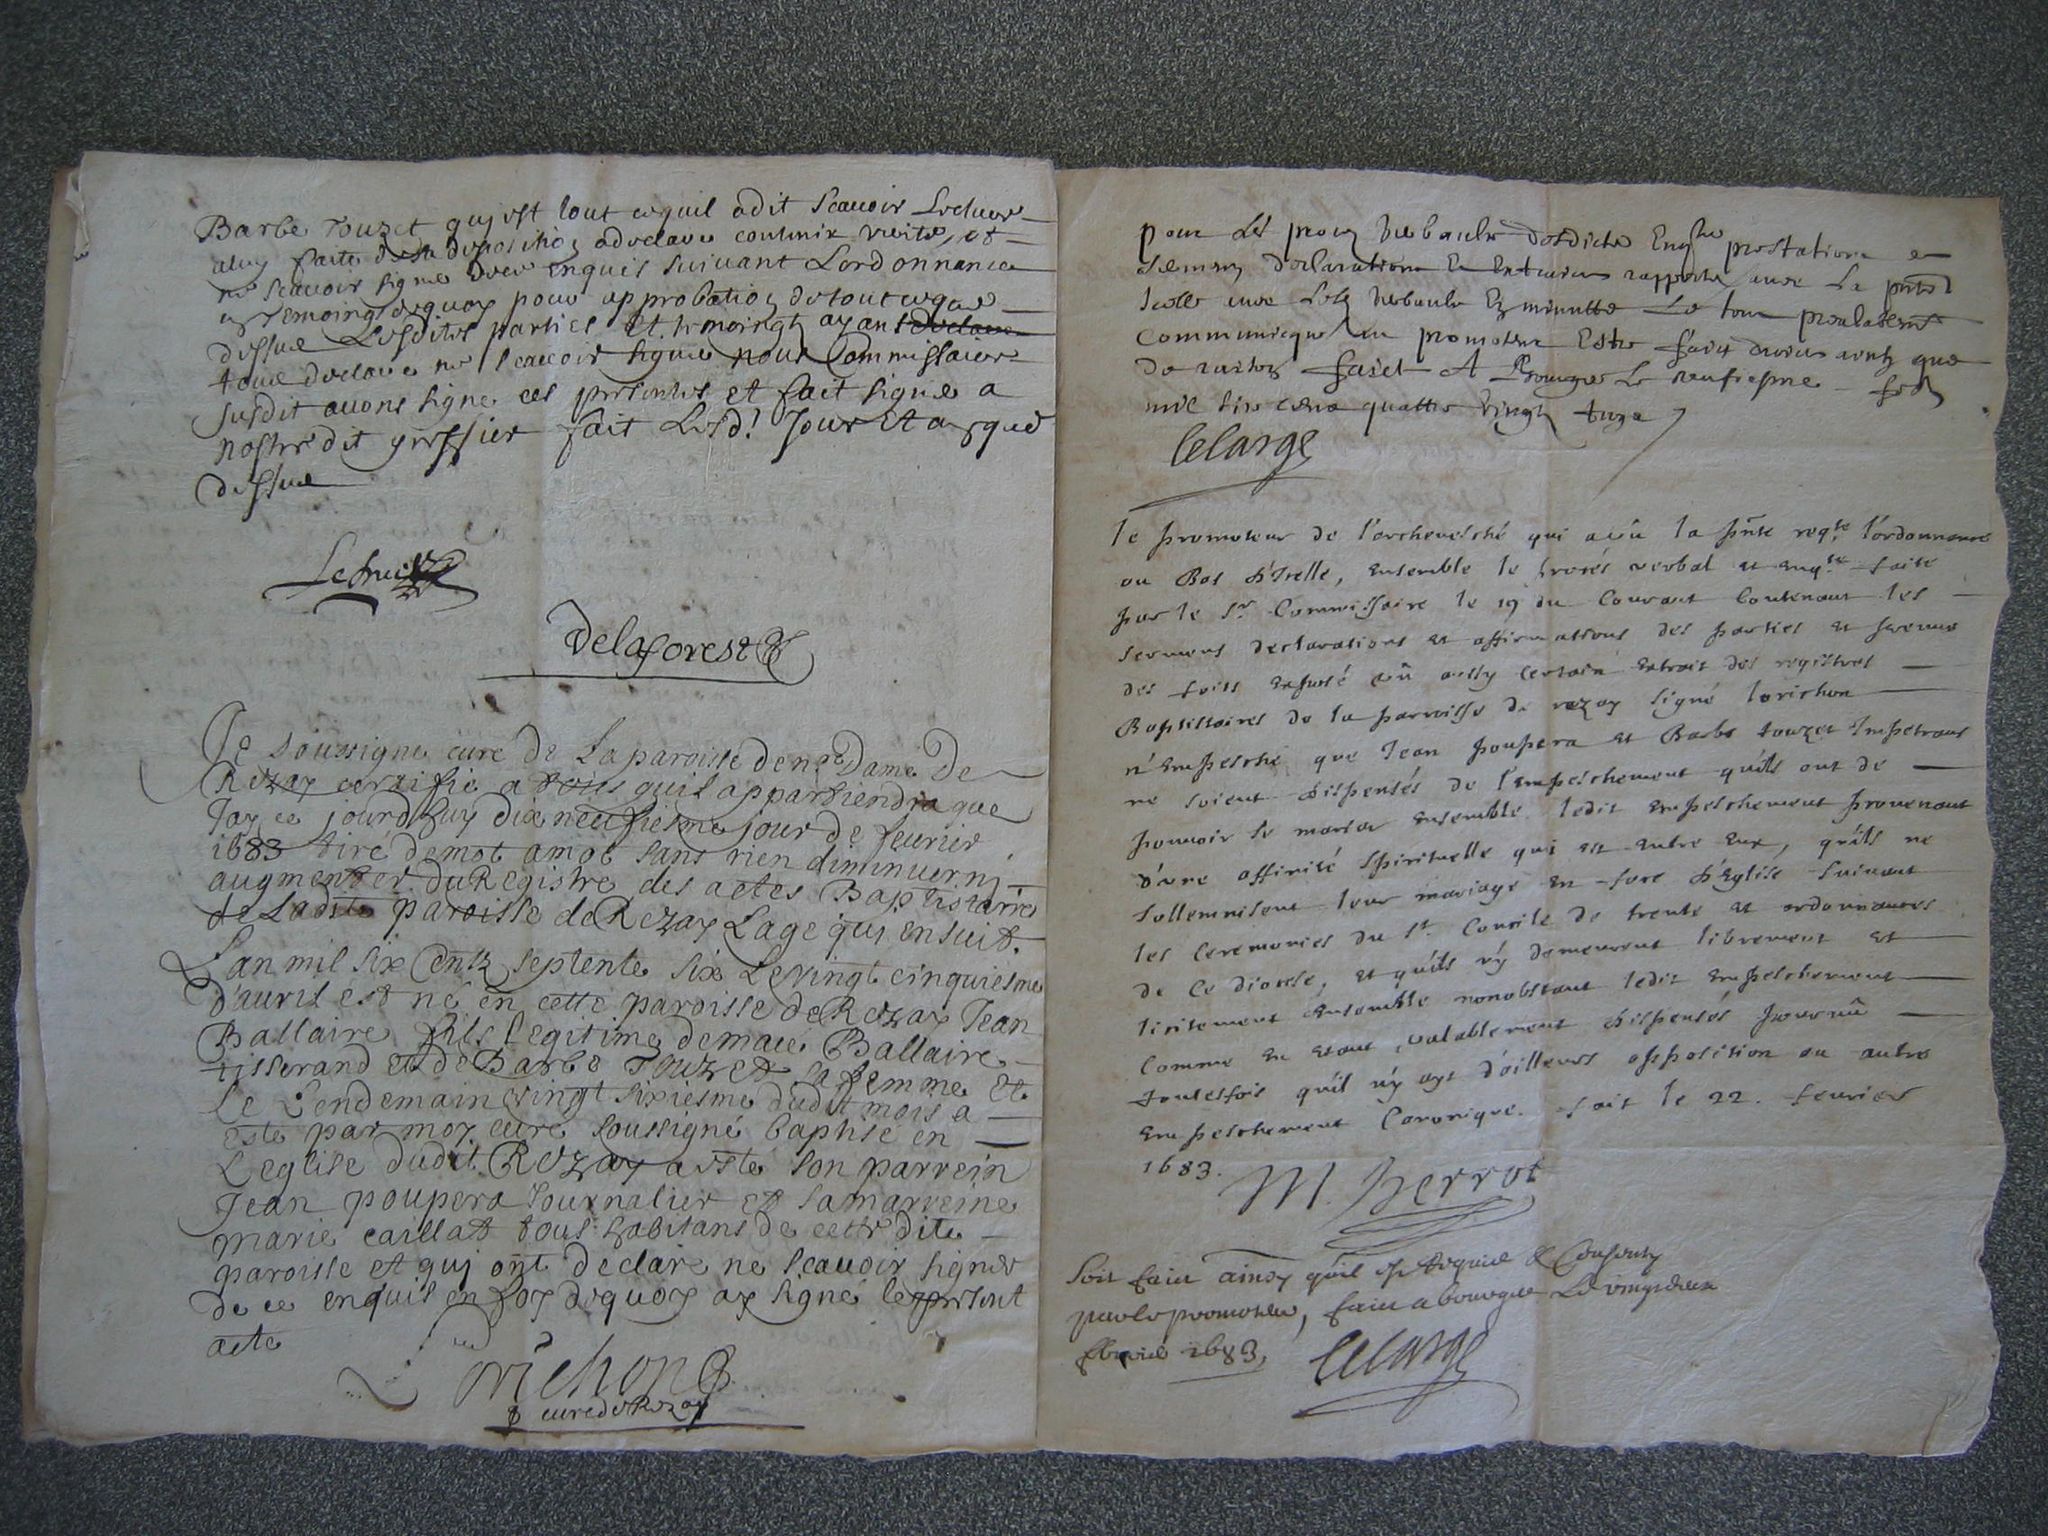 Barbe Touzet quj est tout cequil adit scauoir Lecture
aluy faite desa deposition adeclare contenir verite, et
ne scauoir signe dece enquis suiuant Lordonnance
en temoings dequoy pour approbation detout ceque
dessus Lesdites parties et temoingtz ayant declare
tous declare ne scauoir signer nous Commissaire
susdit auons signe ces presentes et fait signe a
nostre dit greffier fait Lesd! Jour et an que
dessus
Delaforest
Je soussigne curé de La paroisse de nre Dame De
Rezay certifie a tous quil appartiendra que
Jay ce jourdhuy dix neufiesme jour de feurier
1683 tiré demot amot sans rien diminuer nj
augmenter du Registre des actes Baptistaire
de Ladite paroisse de Rezay Lacte qui ensuit.
Lan mil six Centz septente six Le vingt cinquiesme
d'auril est né en cette paroisse de Rezay Jean
Ballaire fils legitime de macé Ballaire
tisserand et de Barbe Touzet sa femme et
Le Lendemain vingt sixiesme dudit mois a
esté par moy curé soussigné baptisé en
Leglise dudit Rezay a esté son parrein
Jean poupera Journalier et sa marreine
marie caillat tous habitans de cette dite
paroisse et quj ont declare ne scauoir signer
de ce enquis en foy dequoy ay signé le present
acte
Lorichon
curé de Rezay
pour Les proces verbaulx desdictes prestation de
serment declaration et rapportes auec La pnte
icelle auec Lesd verbaulx en minutte Le tout prealablemt
communicqué au promoteur Estre faict droict ainsy que
de raison faict A Bourges Le neufiesme feb
mil six cens quattre vingt troys
Lelarge
le promoteur de l'archeuesché qui a vû la pnte reqte l'ordonnance
au Bas d'Icelle, ensemble le procés verbal et enqte faite
par le Sr Commissaire le 19 du Courant Contenant les
sermens declarations et affirmations des parties et preuue
des faits exposé vû aussy certain extrait des registres
Baptistaires de la parroisse de rezay signé lorichon
n'Empesche que Jean poupera et Barbe touzet Impetrans
ne soient dispensés de l'empeschement qu'ils ont de
pouuoir se marier ensemble ledit empeschement prouenant
d'une affinité spirituelle qui est entre eux, qu'ils ne
sollemnisent leur mariage en face d'Eglise suiuant
les ceremonies du St. Concile de trente et ordonnances
de ce diocese, et qu'ils n'y demeurent librement et
licitement ensemble nonobstant ledit empeschement
comme en etant valablement dispensés pourvû
toutesfois qu'il n'y ayt d'ailleurs opposition ou autre
empeschement Canonique. fait le 22. feurier
1683. M. Perrot
Soit faict ainsy quil est requis & Consenty
par le promoteur, faict a bourges Le vingt deux
febvrier 1683, Lelarge